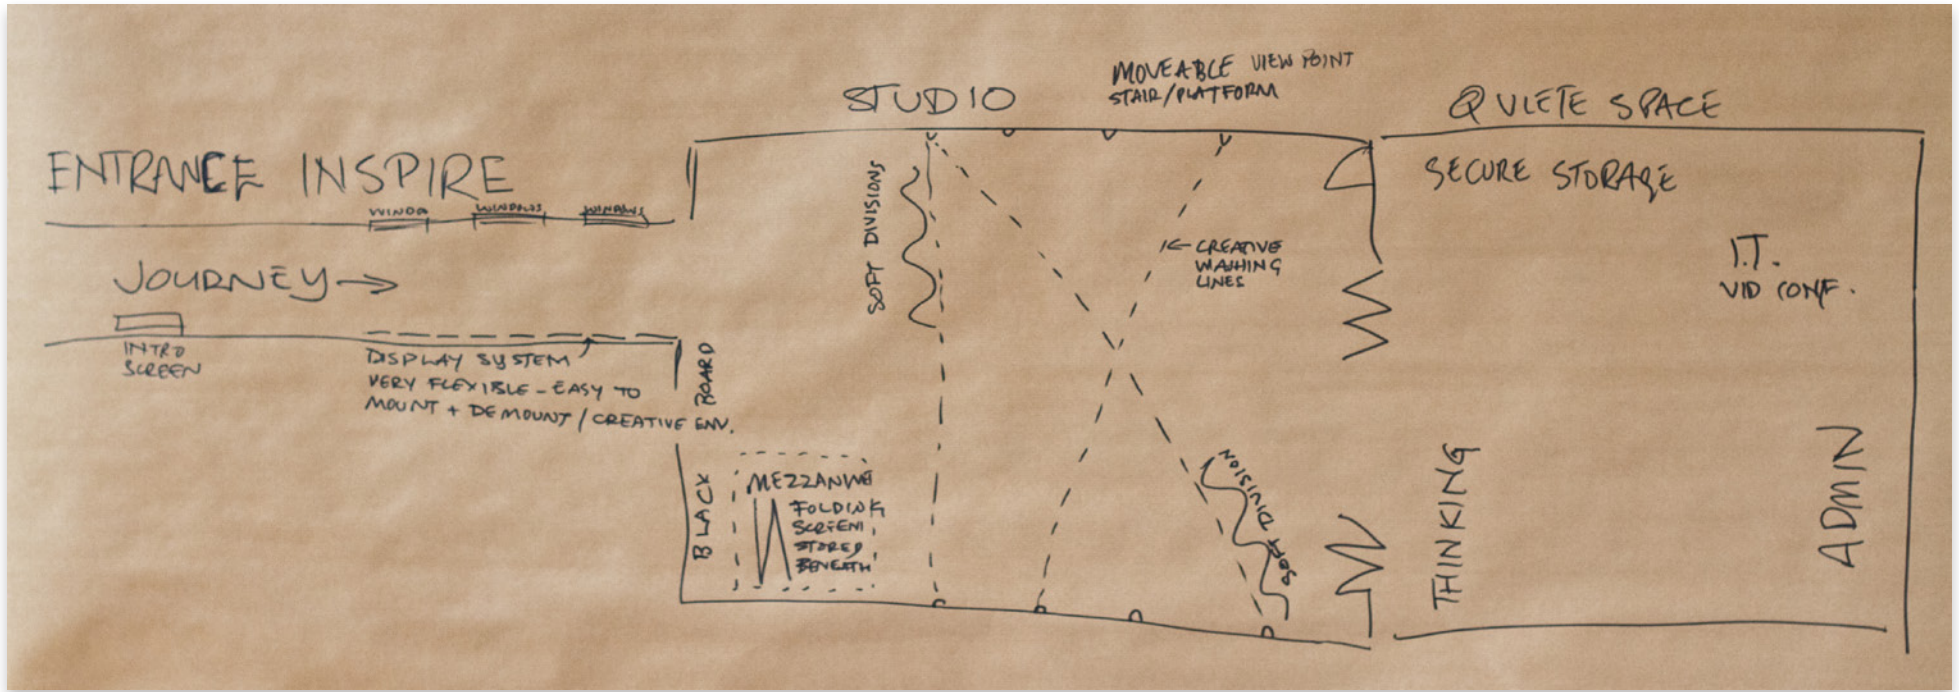 ENTRANCE INSPIRE
WINDO
WINDOWS
WINDOWS
JOURNEY
INTRO
SCREEN
DISPLAY SYSTEM
VERY FLEXIBLE - EASY TO
MOUNT + DEMOUNT / CREATIVE ENV.
STUDIO
MOVEABLE VIEW POINT
STAIR/PLATFORM
SOFT DIVISIONS
← CREATIVE
WASHING
LINES
BLACK BOARD
MEZZANINE
FOLDING
SCREEN
STORED
BENEATH
SOFT DIVISION
QUIETE SPACE
SECURE STORAGE
I.T.
VID CONF.
THINKING
ADMIN